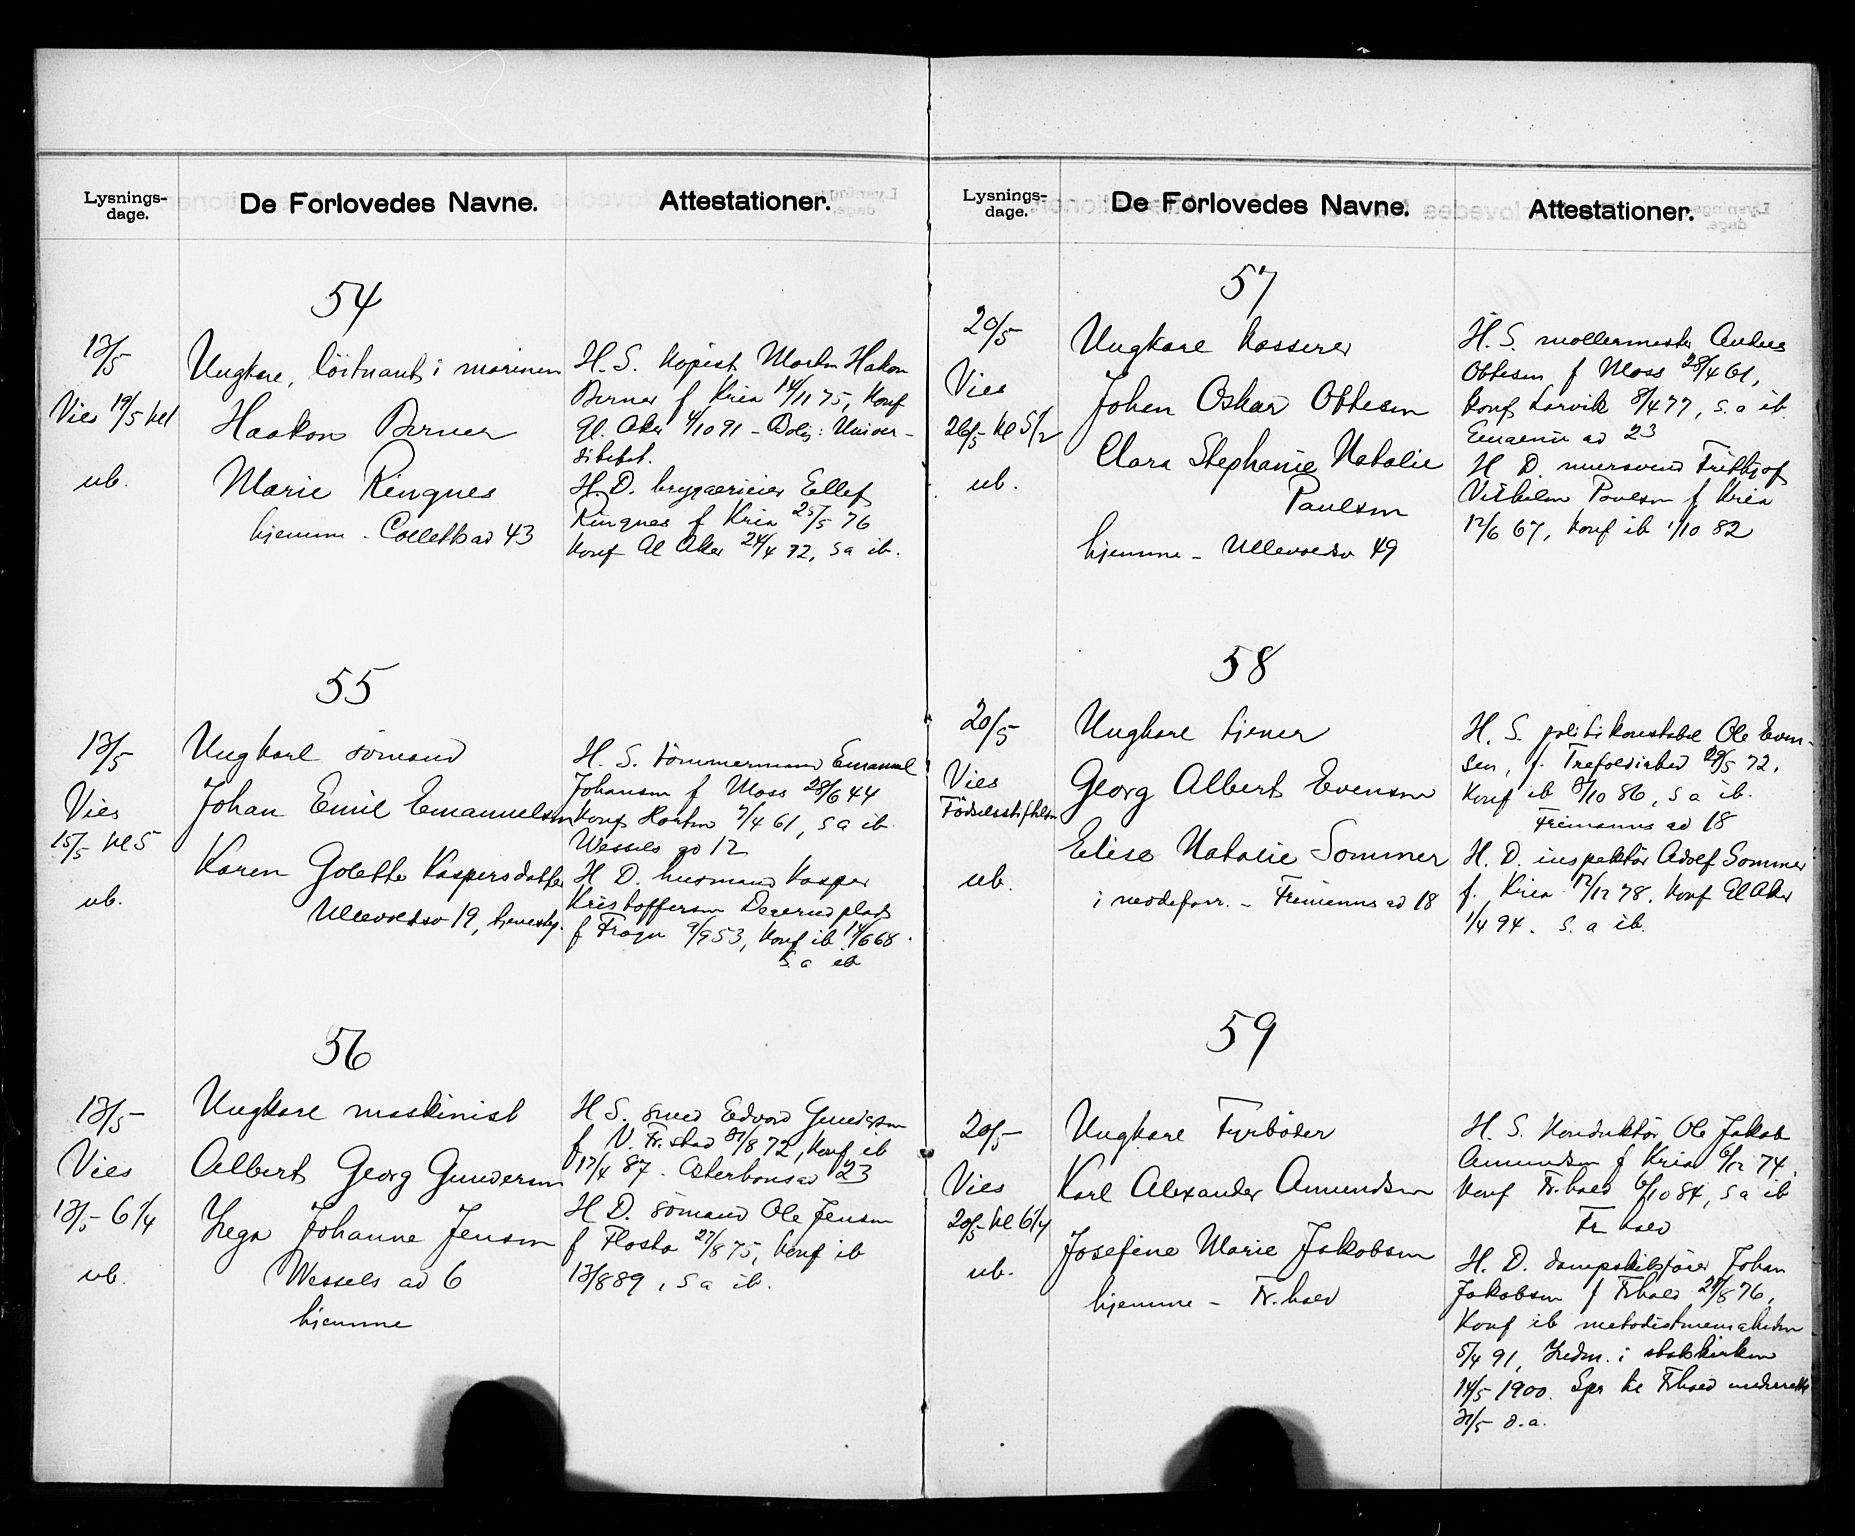 Lysnings-
dage.
De Forlovedes Navne.
Attestationer.
54
13/5
Vies 19/5 kl 1
ub.
Ungkare, löitnant i marinen
Haakon Berner
Marie Ringnes
hjemme - Colletts ad 43
H. S. kopist Morten Hakon
Berner f Kria 14/11 75, Konf
Gl. Aker 4/10 91 - Bolig: Univer-
sitetet.
H. D. bryggerieier Ellef
Ringnes f Kria 25/5 76
Konf Gl Aker 24/4 92, s a ib.
55
13/5
Vies
15/5 kl 5
ub.
Ungkarl sømand
Johan Emil Emanuelsen
Karen Golette Kaspersdatter
Ullevoldsv 19,
H. S. tömmermand Emanuel
Johansen f Moss 28/6 44
Konf Horten 7/4 61, s a ib
Wessels gd 12
H D. husmand Kasper
Kristoffersen plads
f Frogn 9/9 53, Konf ib 14/6 68.
s. a ib
56
13/5
Vies
13/5 - 6 1/4
ub.
Ungkare maskinist
Albert Georg Gundersen
Johanne Jensen
Wessels ad 6
hjemme
H S. smed Edvard Gundersen
f V. Fr.stad 31/8 72, Konf ib
17/4 87. 23
H D. sömand Ole Jensen
f Flosta 27/8 75, Konf ib
13/8 89, s a ib.
Lysnings-
dage.
De Forlovedes Navne.
Attestationer.
57
20/5
Vies
26/5 - kl 5 1/2
ub.
Ungkare kasserer
Johan Oskar Ottesen
Clara Stephanie Natalie
Paulsen
hjemme - Ullevoldsv 49
H. S. møllermester Anders
Ottesen f Moss 28/4 61,
Konf Larvik 8/4 77, s. a ib
Eugenie ad 23
H D. mursvend Frithjof
Vilhelm Paulsen f Kria
12/6 67, Konf ib 1/10 82
58
20/5
Vies
Födselsstiftelsen
ub.
Ungkare tjener
Georg Albert Evensen
Elise Natalie Sommer
i modeforr. - Fremanns ad 18
H. S. politikonstabel Ole Even-
sen, f. Trefoldighed 29/5 72,
Konf ib 3/10 86, s a ib.
Fremanns ad 18
H. D. inspektör Adolf Sommer
f. Kria 12/12 78. Konf Gl Aker
1/4 94. s. a ib.
59
20/5 -
Vies
20/5 - kl 6 1/4
ub.
Ungkare Fyrböder
Karl Alexander Amundsen
Josefine Marie Jakobsen
hjemme - Fr.hald
H. S. Konduktör Ole Jakob
Amundsen f Kria 6/12 74,
Konf Fr.hald 6/10 84, s a ib
Fr hald
H. D. dampskibsförer Johan
Jakobsen f Frhald 27/8 76,
Konf ib metodistmenigheden
5/4 91, Indm. i statskirken
14/5 1900. Frhald
31/5 s. a.